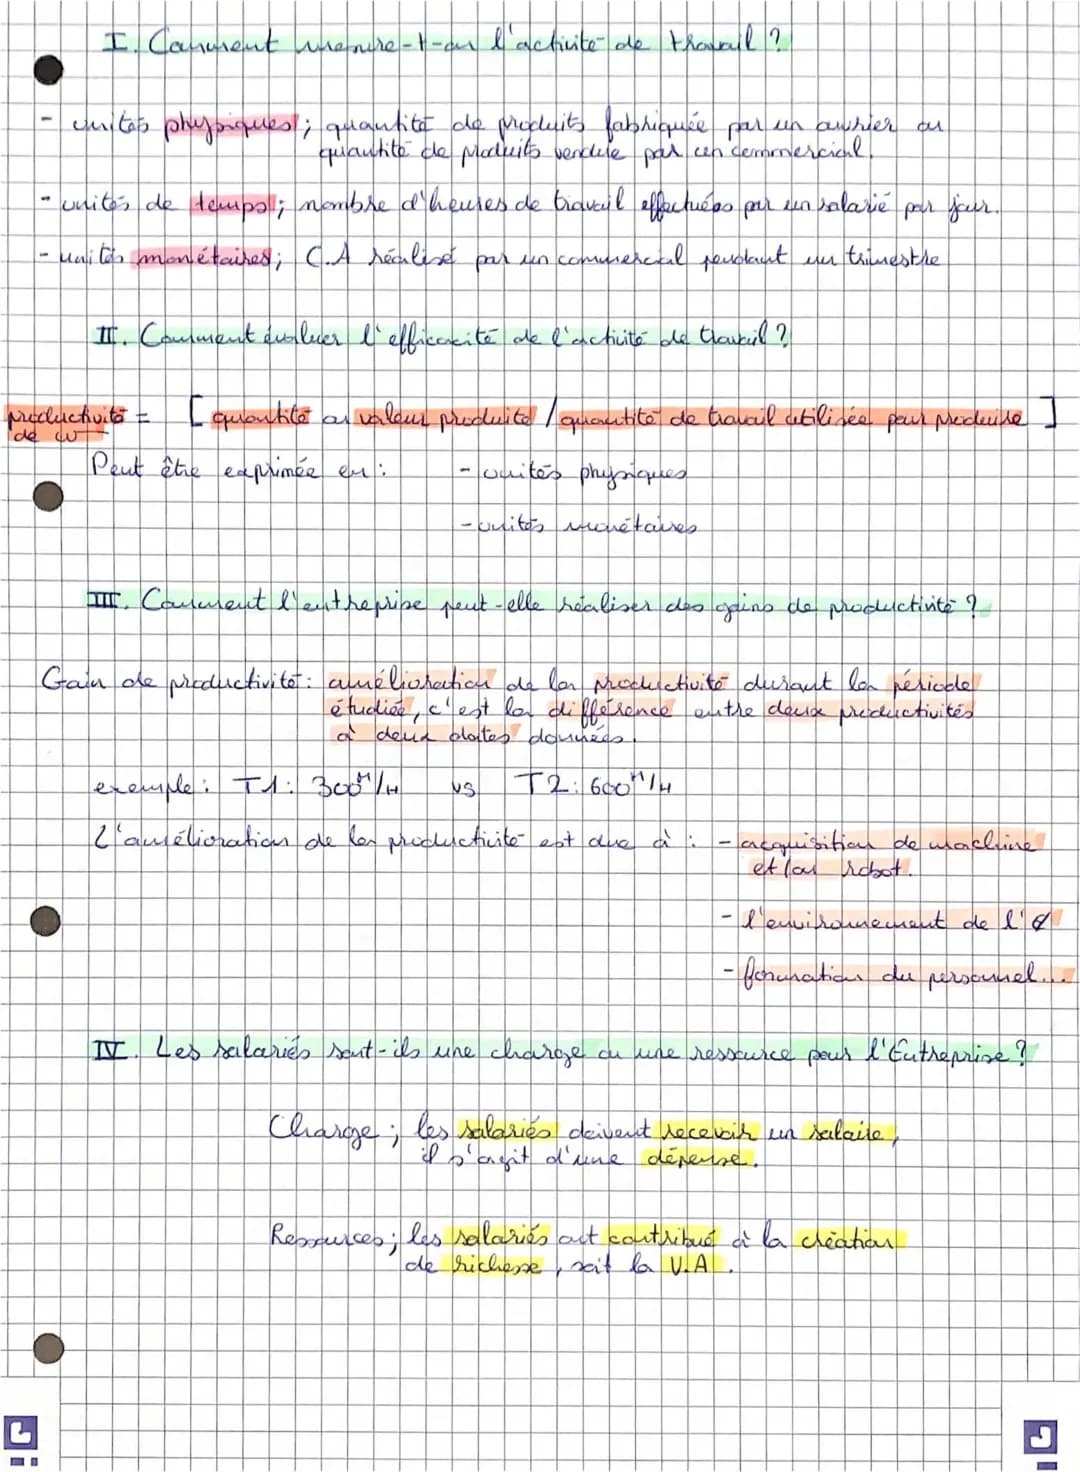 I. Comment mesure-t-on l'activité de travail ?
- unités physiques ; quantité de produits fabriquée par un ouvrier ou
quantité de produits vendue par un commercial.
- unités de temps ; nombre d'heures de travail effectuées par un salarié par jour.
- unités monétaires ; C.A réalisé par un commercial pendant un trimestre
II. Comment évaluer l'efficacité de l'activité de travail ?
productivité = [ quantité ou valeur produite / quantité de travail utilisée pour produire ]
de w
Peut être exprimée en : - unités physiques
- unités monétaires
III. Comment l'entreprise peut-elle réaliser des gains de productivité ?
Gain de productivité : amélioration de la productivité durant la période
étudiée, c'est la différence entre deux productivités
à deux dates données.
exemple : T1 : 300M/H vs T2 : 600M/H
L'amélioration de la productivité est due à : - acquisition de machine
et/ou robot.
- l'environnement de l'
- formation du personnel...
IV. Les salariés sont-ils une charge ou une ressource pour l'Entreprise ?
Charge ; les salariés doivent recevoir un salaire,
il s'agit d'une dépense.
Ressources ; les salariés ont contribué à la création
de richesse, soit la V.A.